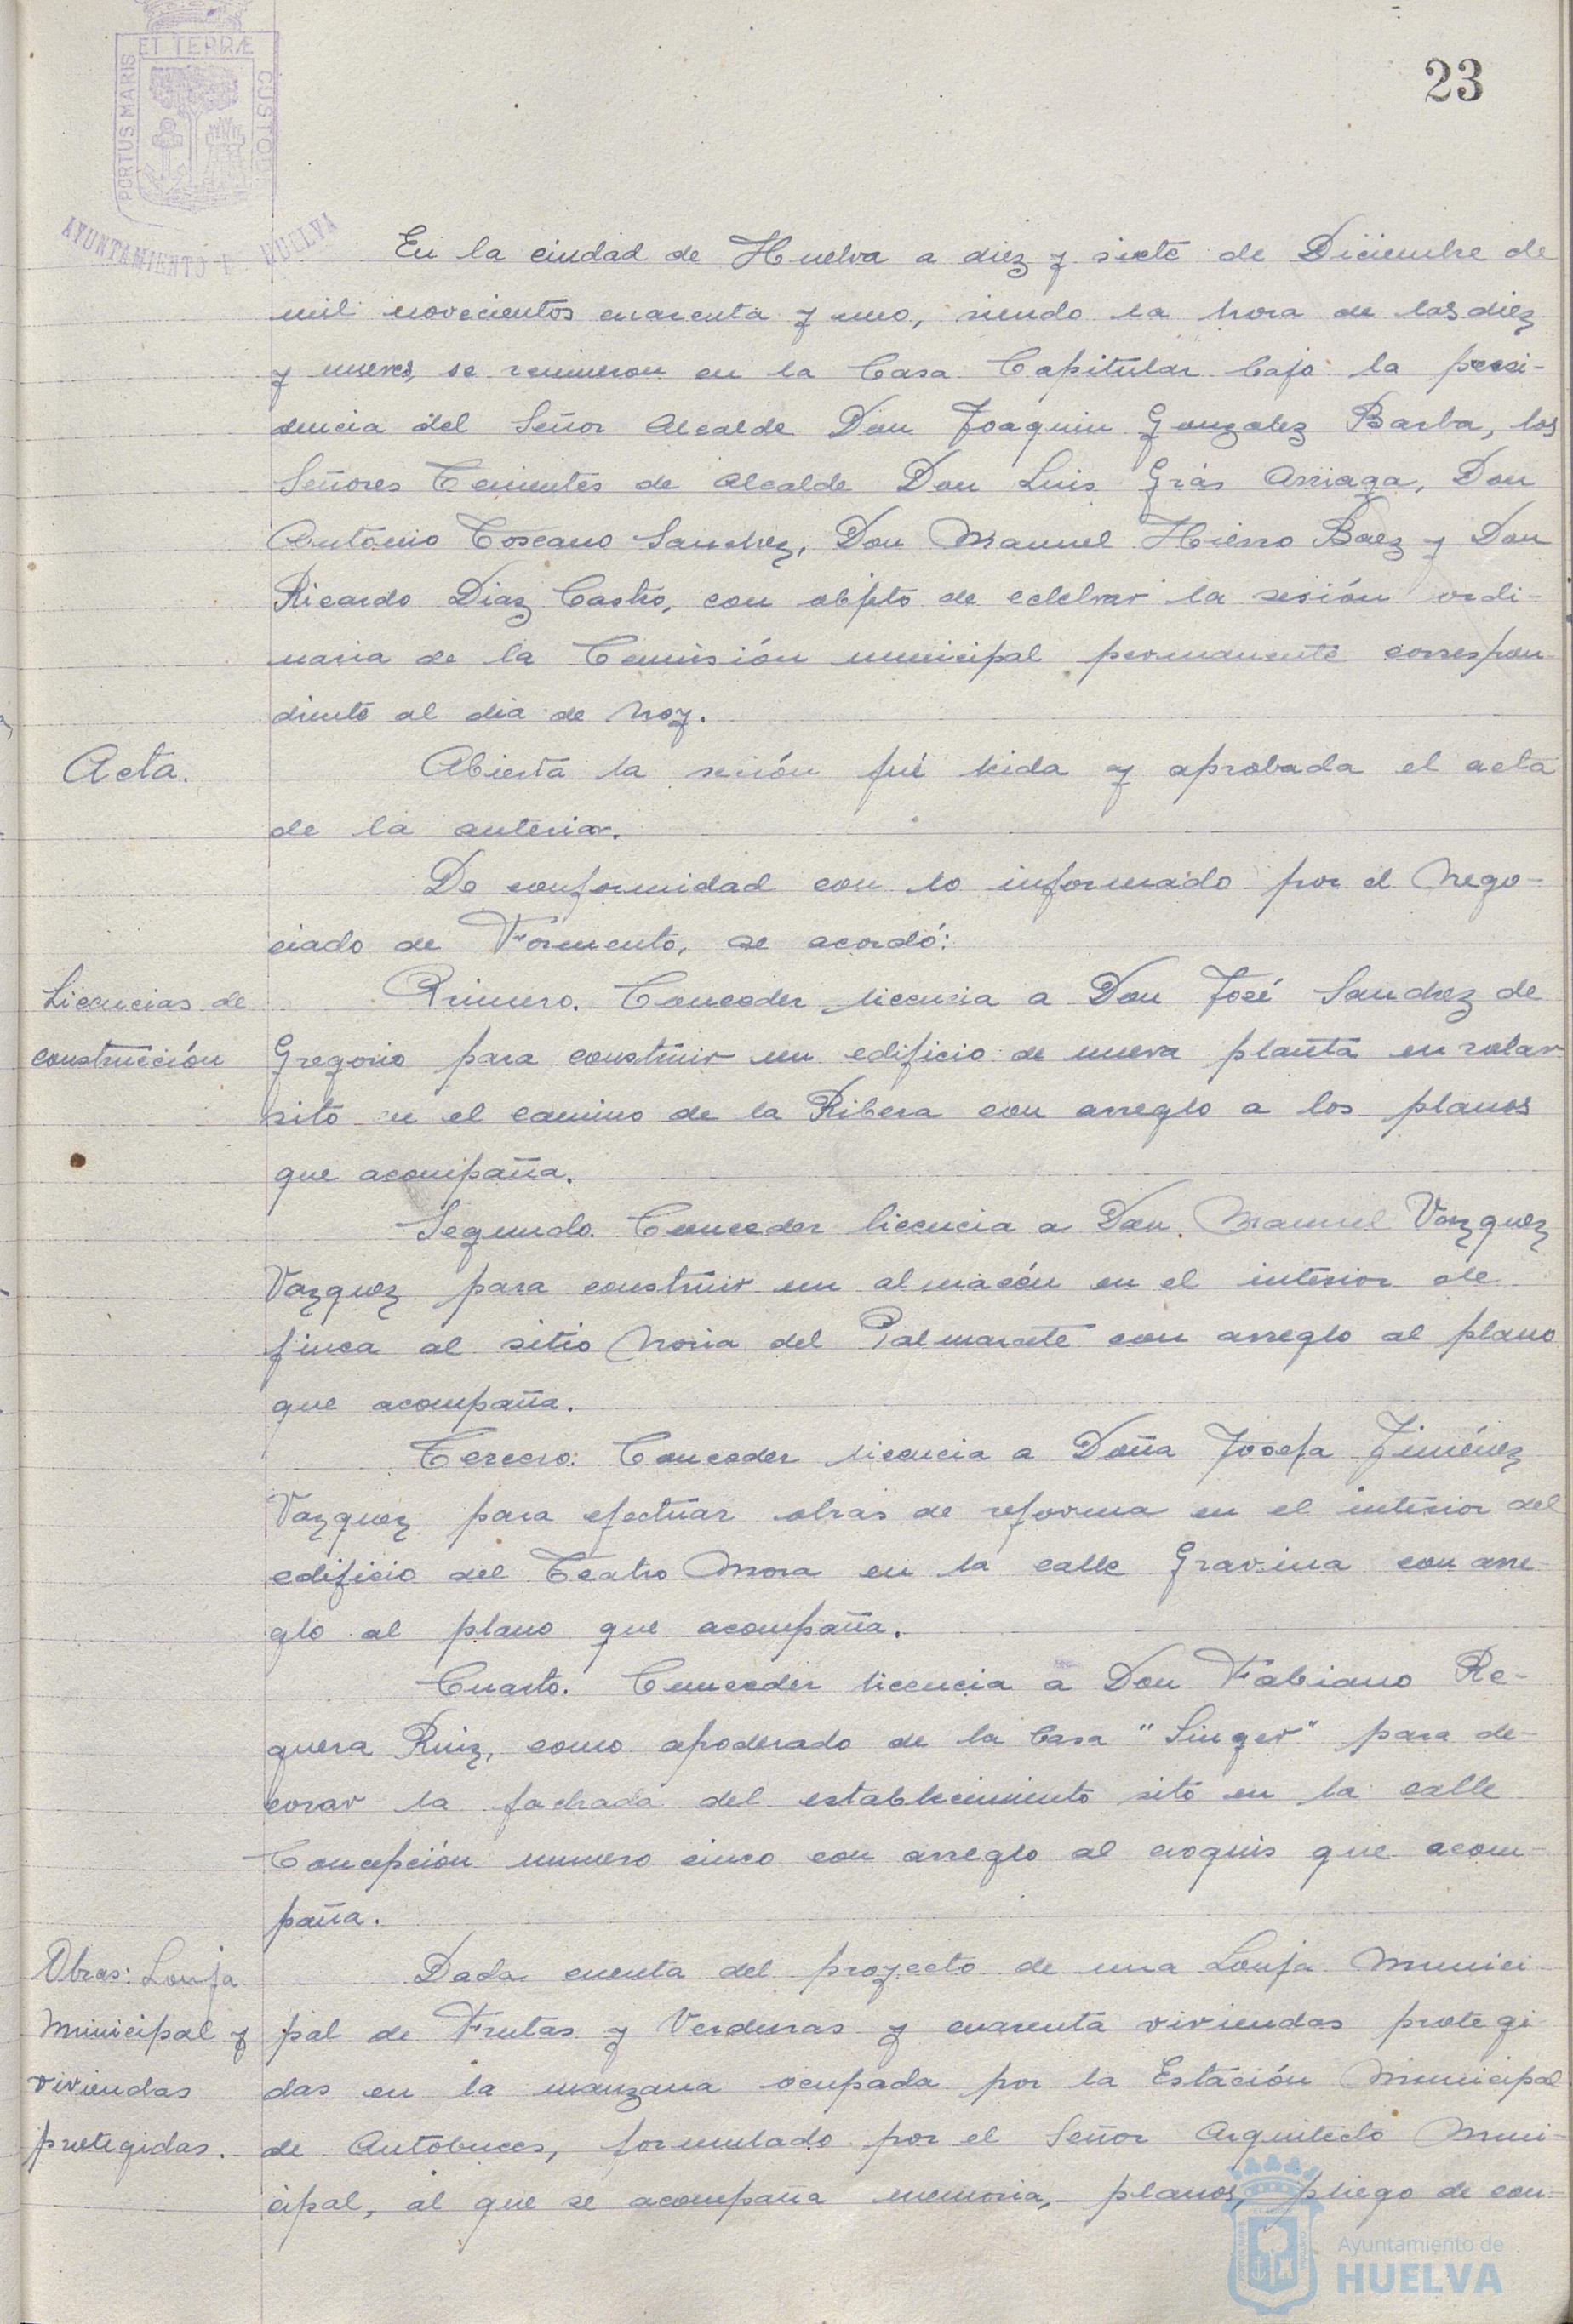 23
ET TERRÆ
PORTUS MARIS
CUSTO
AYUNTAMIENTO HUELVA
En la ciudad de Huelva a diez y siete de Diciembre de
mil novecientos cuarenta y uno, siendo la hora de las diez
y nueve, se reunieron en la Casa Capitular bajo la presi-
dencia del Señor Alcalde Don Joaquin Gonzalez Barba, los
Señores Tenientes de Alcalde Don Luis Grás Arriaga, Don
Antonio Toscano Sanchez, Don Manuel Hierro Baez y Don
Ricardo Diaz Castro, con objeto de celebrar la sesión ordi-
naria de la Comisión municipal permanente correspon
diente al dia de hoy.
Acta.
Abierta la sesión fué leida y aprobada el acta
de la anterior.
De conformidad con lo informado por el Nego-
ciado de Formento, se acordó:
Licencias de
construcción
Primero. Conceder licencia a Don José Sanchez de
Gregorio para construir un edificio de nueva planta en solar
sito en el camino de la Ribera con arreglo a los planos
que acompaña.
Segundo. Conceder licencia a Don Manuel Vazquez
Vazquez para construir un almacén en el interior de
finca al sitio Noria del con arreglo al plano
que acompaña.
Tercero: Conceder licencia a Doña Josefa Jiménez
Vazquez para efectuar obras de reforma en el interior del
edificio del Teatro Mora en la calle Gravina con arre-
glo al plano que acompaña.
Cuarto. Conceder licencia a Don Fabiano Re-
quera Ruiz, como apoderado de la Casa "Singer" para de-
corar la fachada del establecimiento sito en la calle
Concepción numero cinco con arreglo al croquis que acom-
paña.
Obras: Lonja
Municipal y
viviendas
protegidas.
Dada cuenta del proyecto de una Lonja Munici-
pal de Frutas y Verduras y cuarenta viviendas protegi-
das en la manzana ocupada por la Estación Municipal
de Autobuces, formulado por el Señor Arquitecto Muni-
cipal, al que se acompaña memoria, planos, pliego de con-
Ayuntamiento de
HUELVA